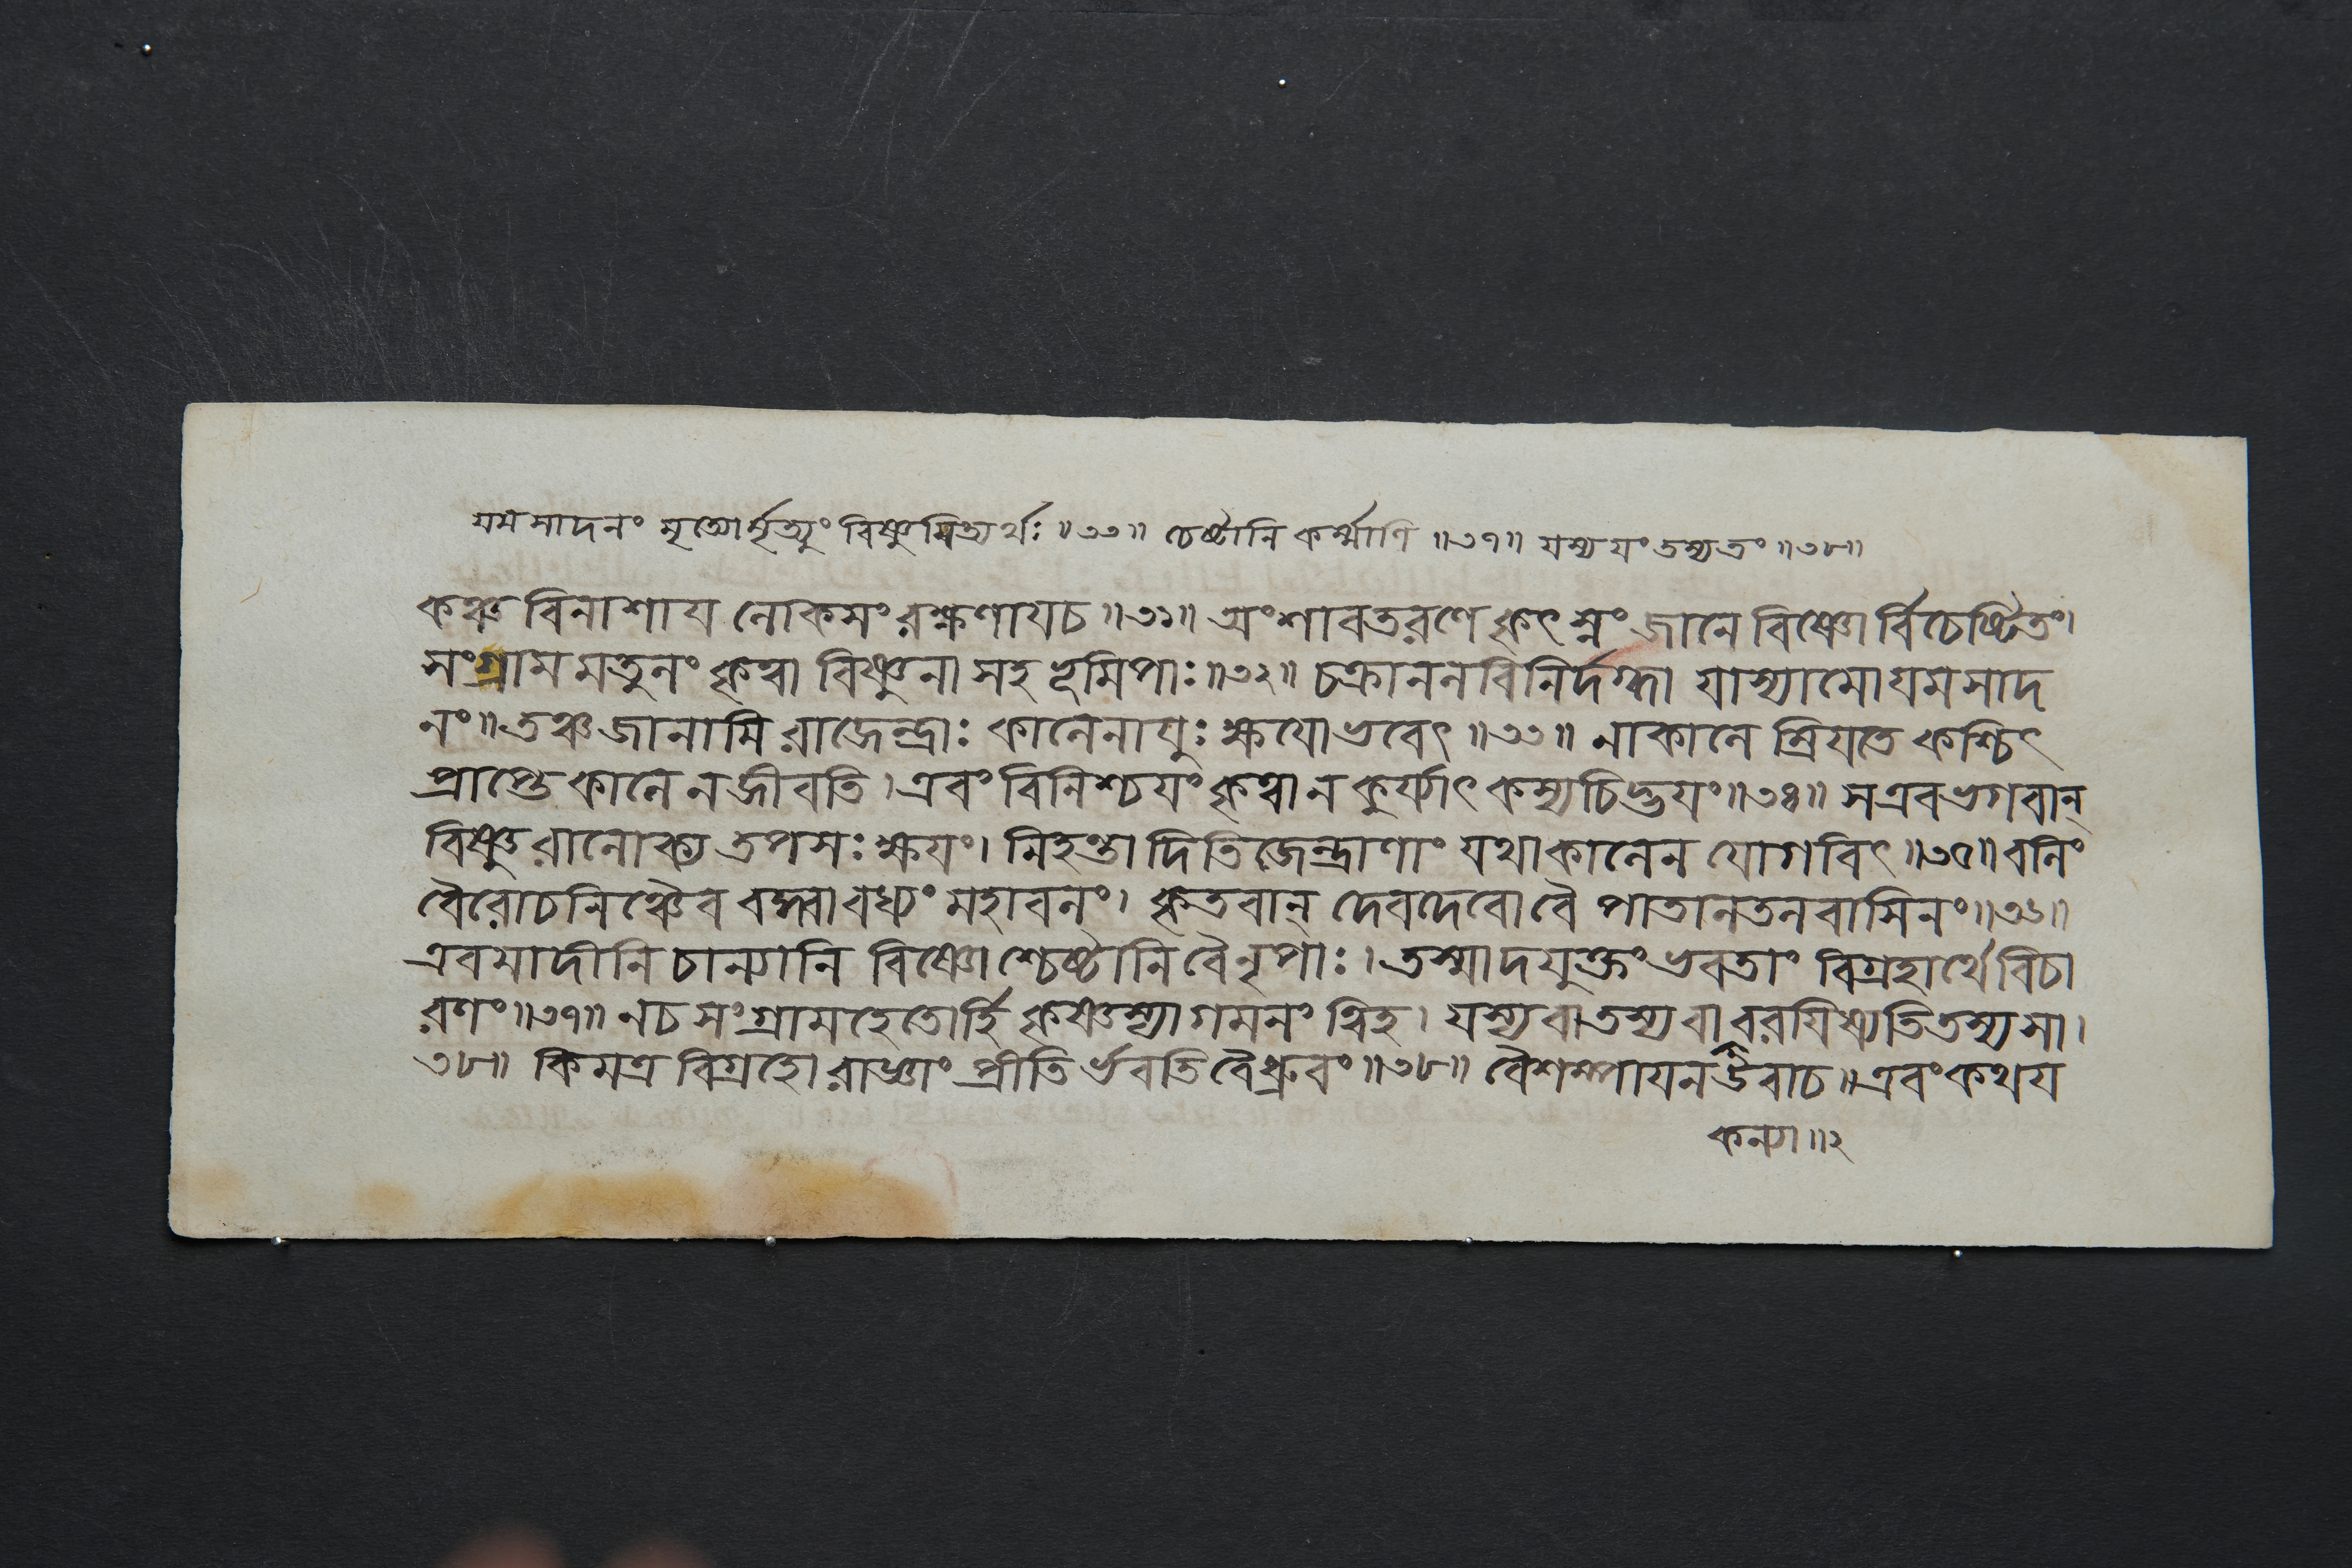 যমসাদনং মৃত্যোর্মৃত্যুং বিষ্ণুমিত্যর্থঃ ॥৩৩॥ চেষ্টানি কর্ম্মাণি ॥৩৭॥ যস্যযংতস্যত্রং ॥৩৮॥
কঞ্চ বিনাশায লোকসংরক্ষণাযচ ॥৩১॥ অংশাবতরণে কৃৎস্নং জানে বিষ্ণোর্বিচেষ্টিতং।
সংগ্রামমতুলং কৃত্বা বিষ্ণুনা সহ ভূমিপাঃ॥৩২॥ চক্রানলবিনির্দগ্ধা যাস্যামো যমসাদ
নং॥ তঞ্চ জানামি রাজেন্দ্রাঃ কালেনাযুঃক্ষযো ভবেৎ ॥৩৩॥ নাকালে ম্রিযতে কশ্চিৎ
প্রাপ্তে কালে ন জীবতি। এবং বিনিশ্চযং কৃত্বা ন কুর্য্যাৎ কস্যচিদ্ভযং॥৩৪॥ সএবভগবান্
বিষ্ণুরালোক্য তপসঃ ক্ষযং। নিহন্তা দিতিজেন্দ্রাণাং যথাকালেন যোগবিৎ ॥৩৫॥ বলিং
বৈরোচনিঞ্চৈব বদ্ধ্বাবধ্যং মহাবলং। কৃতবান্ দেবদেবো বৈ পাতালতলবাসিনং॥৩৬॥
এবমাদীনি চান্যানি বিষ্ণোশ্চেষ্টানি বৈ নৃপাঃ। তস্মাদযুক্তং ভবতাং বিগ্রহার্থে বিচা
রণং॥৩৭॥ নচ সংগ্রামহেতোর্হি কৃষ্ণস্যাগমনং ত্বিহ। যস্য বা তস্য বা বরযিষ্যতি তস্য সা।
৩৮॥ কিমত্র বিগ্রহো রাজ্ঞাং প্রীতির্ভবতি বৈ ধ্রুবং॥৩৮॥ বৈশম্পাযনউবাচ॥ এবং কথয
কন্যা॥২